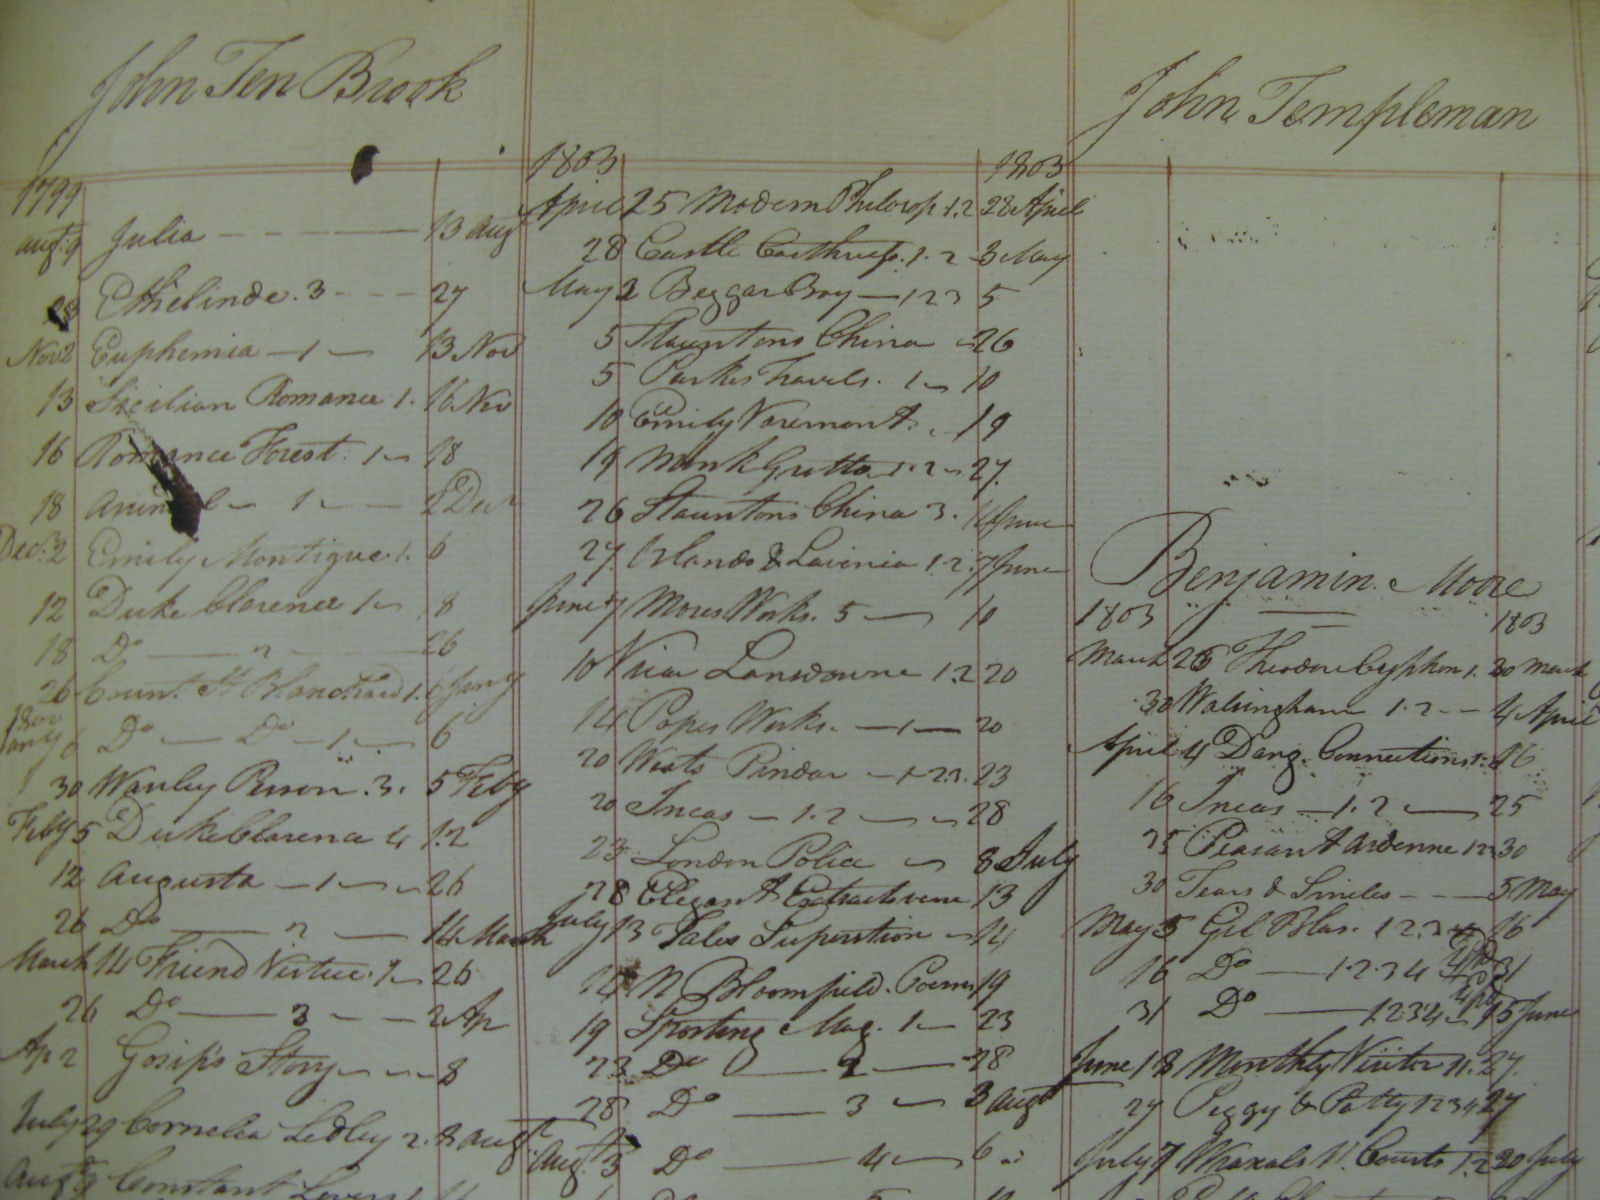 John Ten Brook
1799
Augt. 9 Julia 13 Augt
28 Ethelinde. 3 27
Nov 2 Euphemia 1 13 Nov
13 Sicilian Romance 1. 16 Nov
16 Romance Forest. 1 18
18 1 2 Decr
Dec. 2 Emily Montigue. 1. 6
12 Duke Clarence 1 18
18 Do 26
26 Count St Blanchard 1. 6 Jany
1800
Jany 6 Do Do 1 6
30 Wanley Penson. 3. 5 Feby
Feby 5 Duke Clarence 4 12
12 Augusta 1 26
26 Do 14 March
March 14 Friend Virtue. 1 26
26 Do 3 2 Ap
Ap 2 Gosips Story 8
July 29 Cornelia Sedley 2. 8 Augt.
Augt 8 Constant Lover
1803 1803
April 25 Modern Philosop 1.2 28 April
28 Castle 1.2 3 May
May 2 Beggar Boy 1 2 3 5
5 Stauntons China 26
5 Parkes Travels. 1 10
10 Emily Varemont. 19
19 Monk Grotto 1.2 27.
26 Stauntons China 3. June
27 Orlando & Lavinia 1.2. 7 June
June 7 Mores Works. 5 10
10 Vicar Lansdowne 1.2 20
14 Popes Works. 1 20
20 Wests Pindar 1.2.3. 23
20 Incas 1.2 28
23 London Police 8 July
28 Elegant Extracts verse 13
July 13 Tales Superstion 14
14 N Bloomfield. Poems 19
19 Sporting Mag. 1 23
23 Do 2 28
28 Do 3 3 Augt
Aug. 3 Do 4 6
John Templeman
Benjamin Moore
1803 1803
March 26 Theodore Cyphon 1. 30 March
30 Walsingham 1.2 4 April
April 4 Dang. Connections 16
16 Incas 1.2 25
25 Peasant Ardenne 1 2 3 30
30 Tears & Smiles 5 May
May 5 Gil Blas. 1 2.3 4 16
16 Do 1.2.3 4 31
31 Do 1 2 3 4 15 June
June 18 Monthly Visitor 11. 27.
27 Peggy & Patty 1 2 3 4 27
July 7 Wraxals Courts 1.2 20 July